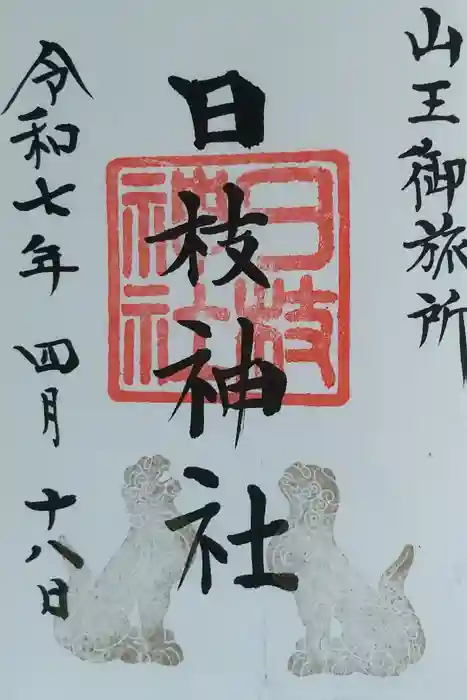 山王御旅所
日枝神社
日枝神社
令和七年 四月 十八日